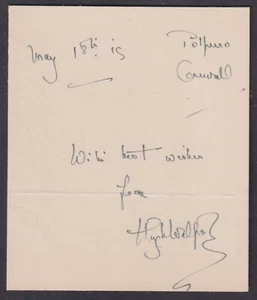 May 18th 15 Polperro
Cornwall
With best wishes
from
Hugh Walpole